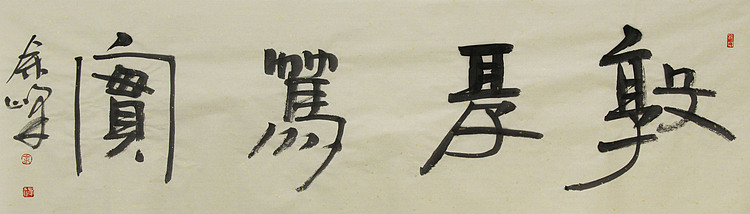 敦厚篤實
峰